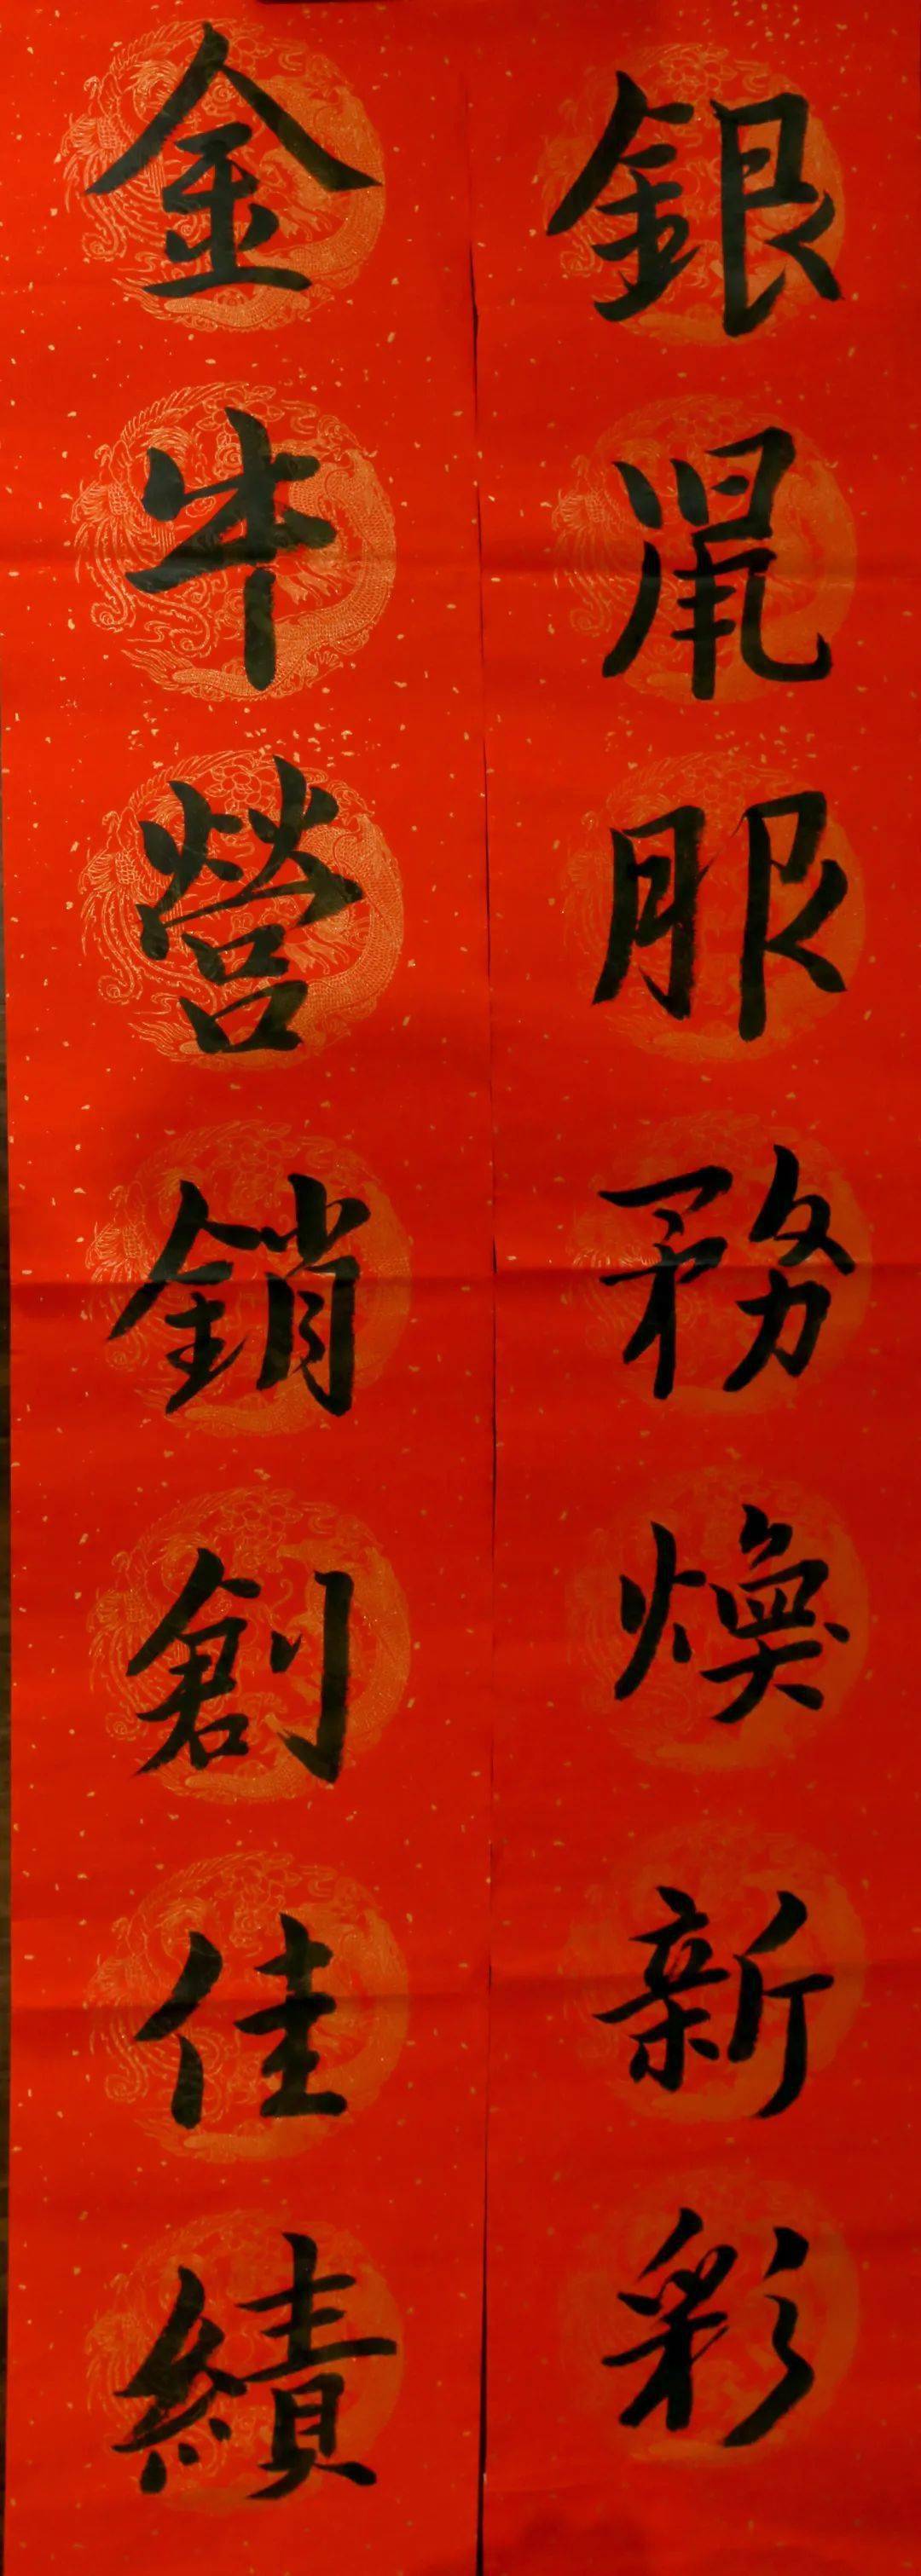 銀鼠服務煥新彩
金牛營銷創佳績